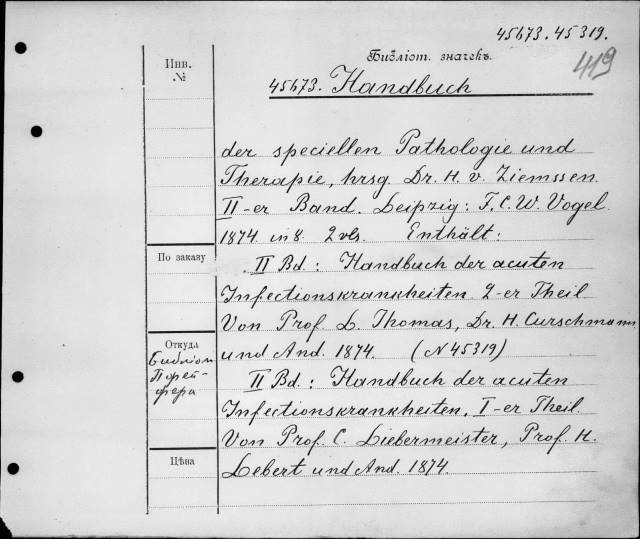 45673. 45319.
Библіот. значекъ.
419
Инв.
№
45673. Handbuch
der speciellen Pathologie und
Therapie, hrsg. Dr. H. v. Ziemssen.
II-er Band. Leipzig: F. C. W. Vogel.
1874. in 8. 2 vls. Enthält:
По заказу
II Bd: Handbuch der acuten
Infectionskrankheiten 2-er Theil
Von Prof. L. Thomas, Dr. H. Curschmann
Откуда
und And. 1874. (N 45319)
II Bd: Handbuch der acuten
Infectionskrankheiten, I-er Theil.
Von Prof. C. Liebermeister, Prof. H.
Цѣна
Lebert und And. 1874.